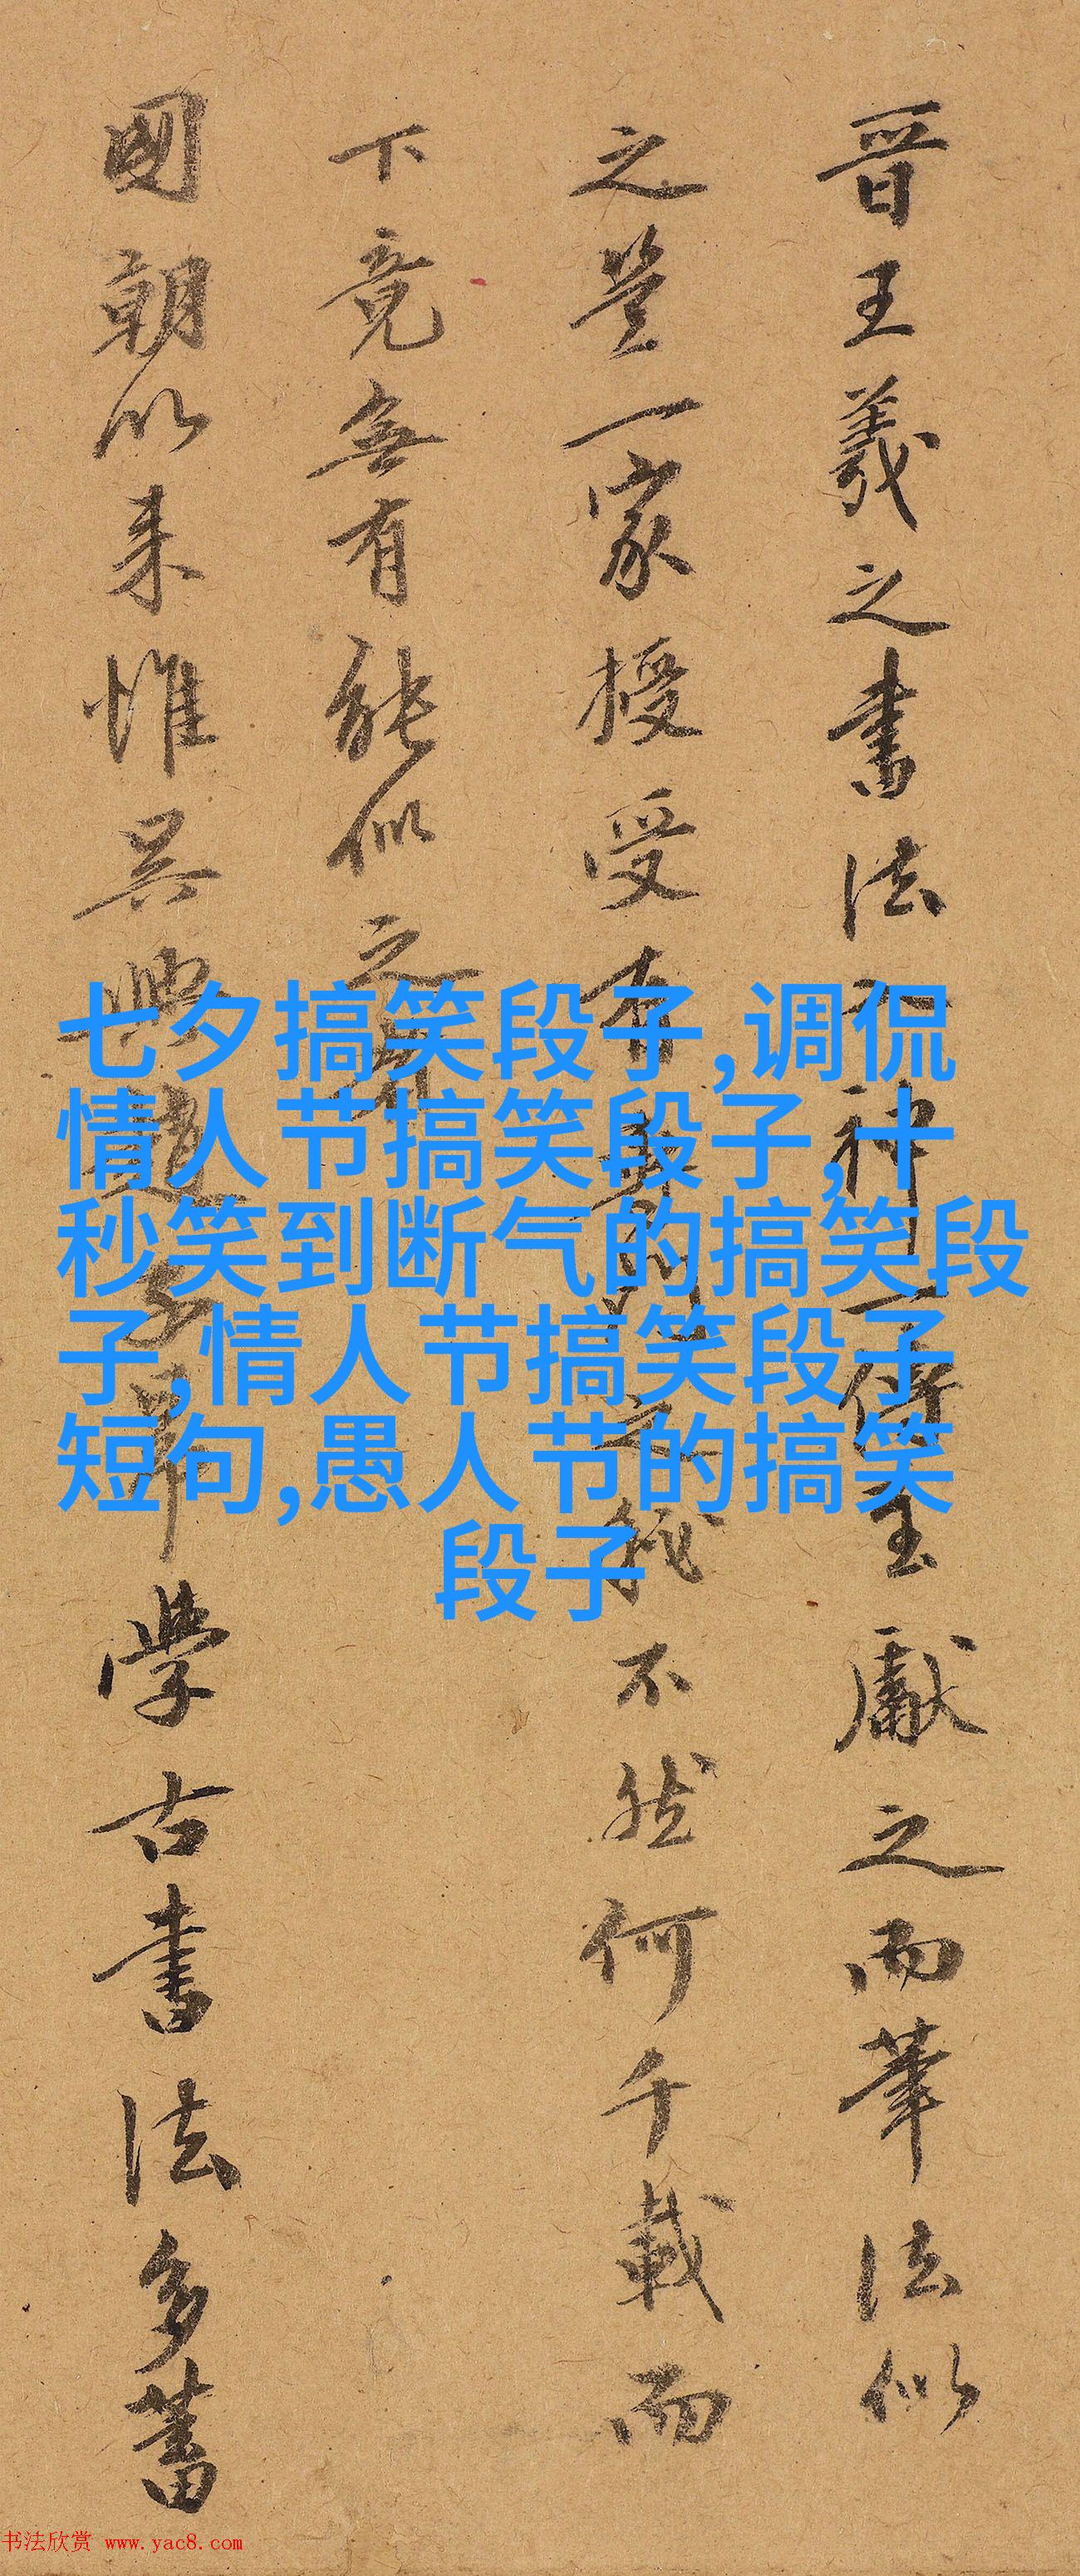 晋王羲之書法神一傳至獻之而筆法似
之豈一家授受有專門之秘不然何千載而
下竟無有能似之者
國朝以来惟吳興趙子昂學古書法多蓄
七夕搞笑段子,调侃
情人节搞笑段子,十
秒笑到断气的搞笑段
子,情人节搞笑段子
短句,愚人节的搞笑
段子
书法欣赏 www.yac8.com